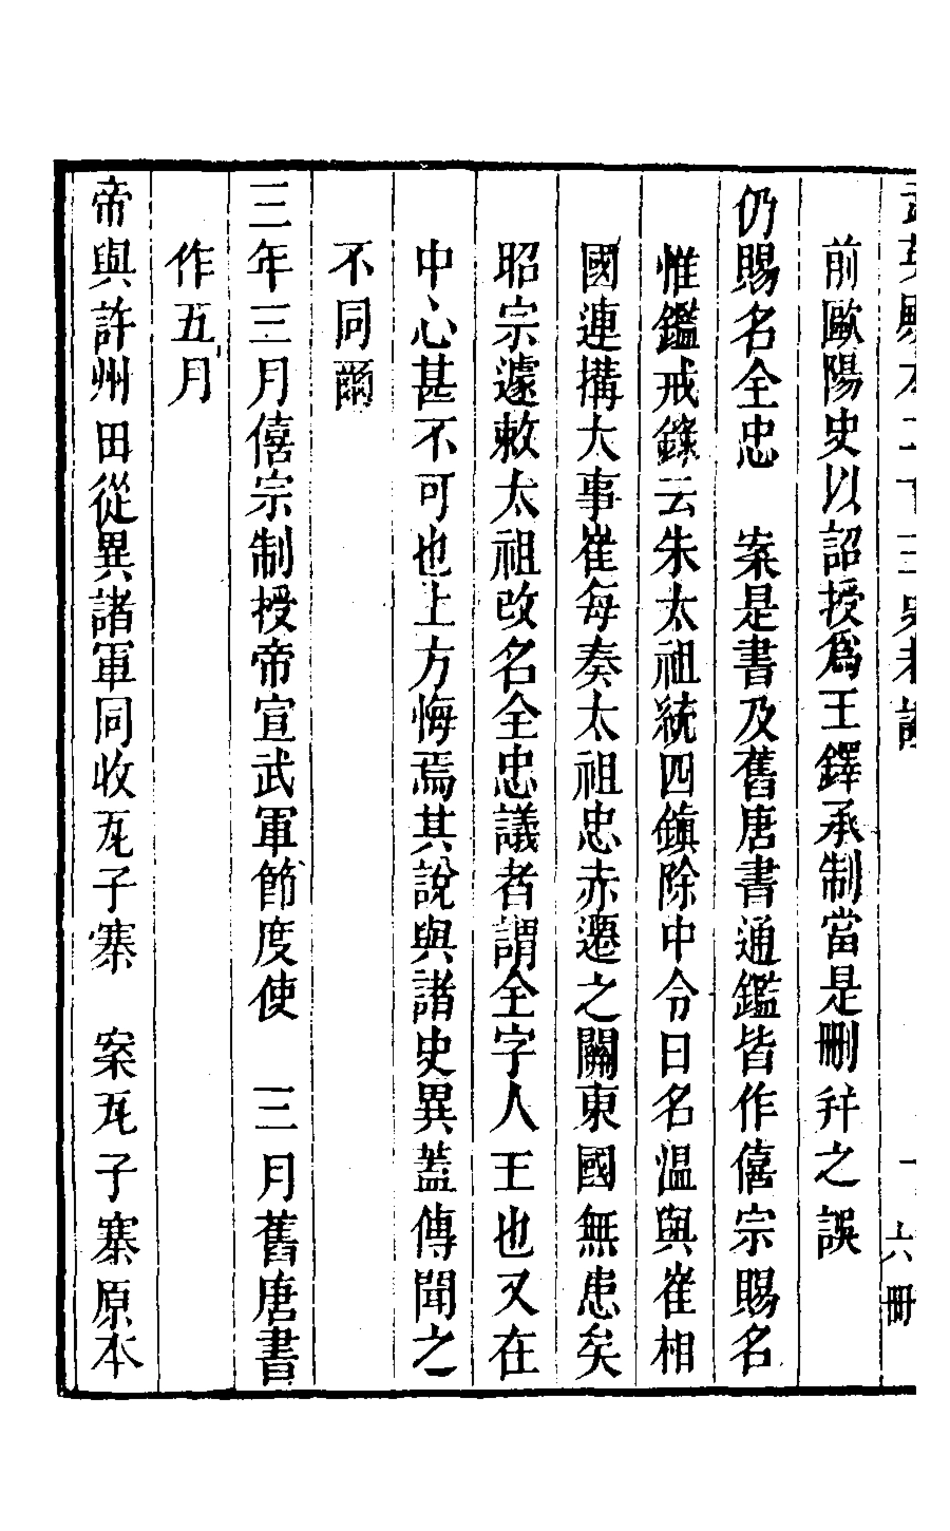 前歐陽史以詔授爲王鐸承制當是刪幷之誤
仍賜名全忠　案是書及舊唐書通鑑皆作僖宗賜名
惟鑑戒錄云朱太祖統四鎮除中令日名溫與崔相
國連搆大事崔每奏太祖忠赤遷之關東國無患矣
昭宗遽敕太祖改名全忠議者謂全字人王也又在
中心甚不可也上方悔焉其說與諸史異蓋傳聞之
不同爾
三年三月僖宗制授帝宣武軍節度使　三月舊唐書
作五月
帝與許州田從異諸軍同收瓦子寨　案瓦子寨原本